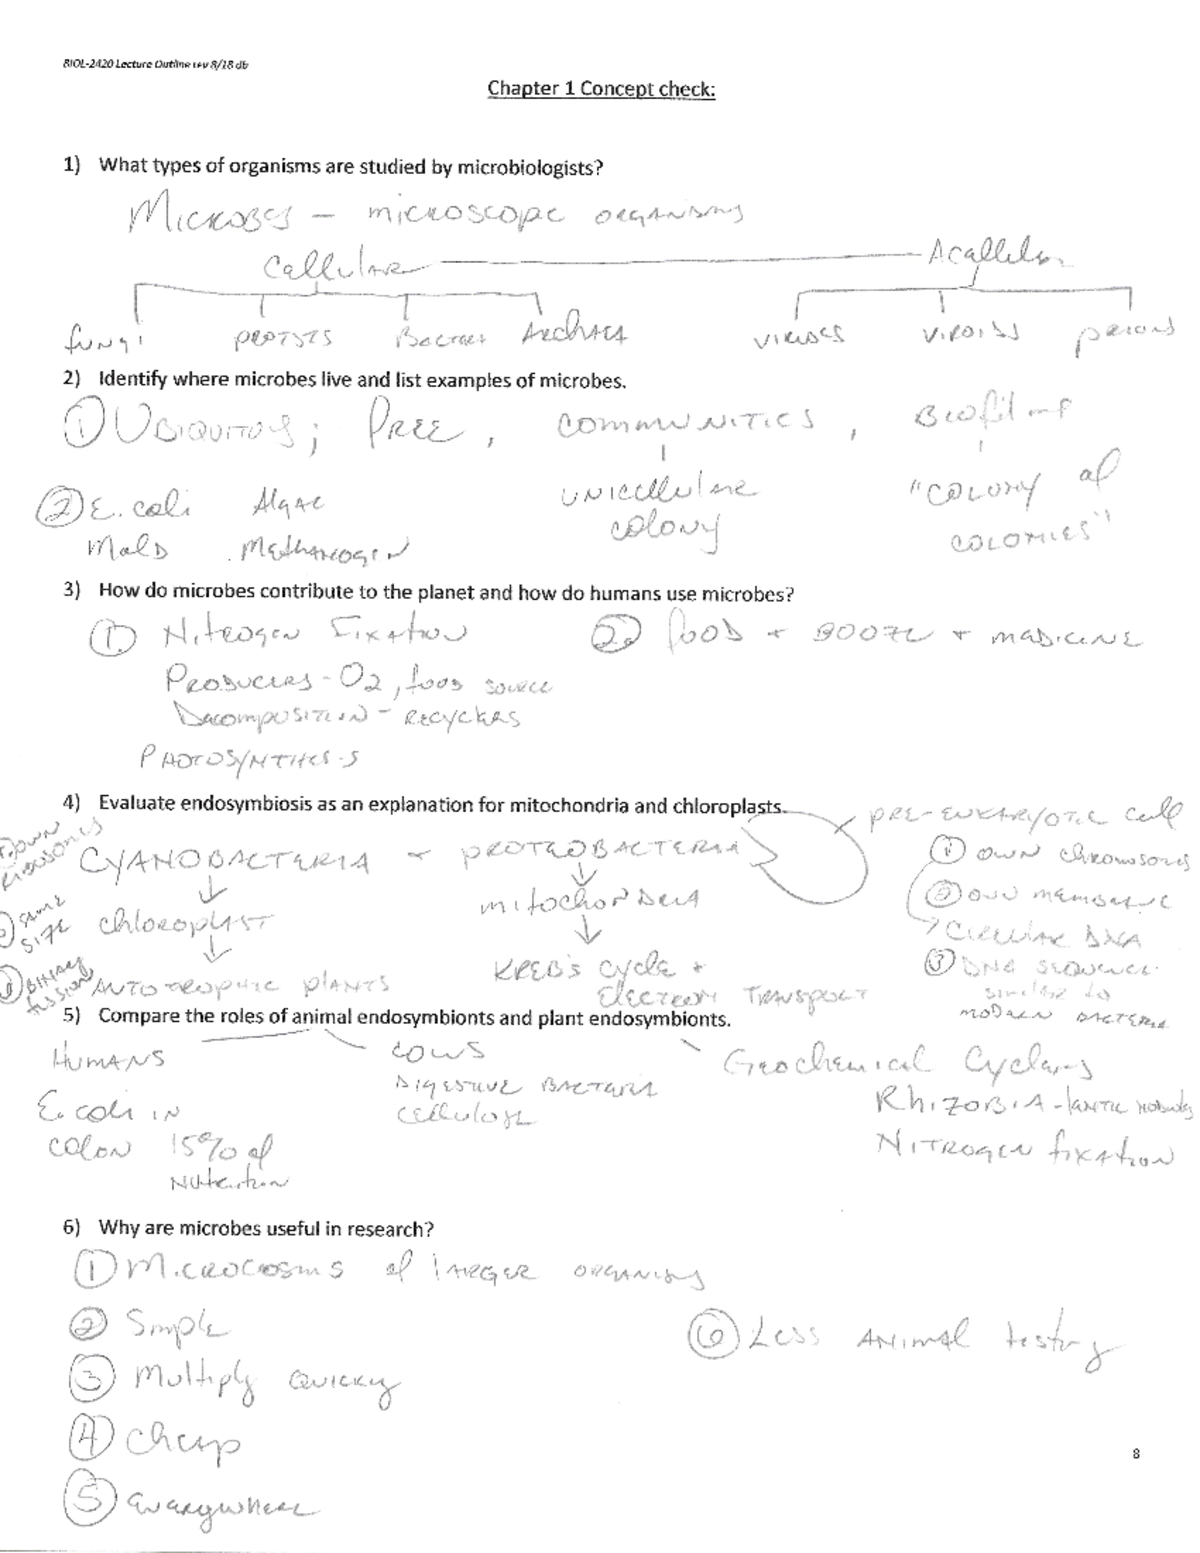 BIOL-2420 Lecture Outline rev 8/18 db
Chapter 1 Concept check:
1) What types of organisms are studied by microbiologists?
MICROBES - MICROSCOPIC ORGANISMS
Cellular Acellular
fungi PROTISTS BACTERIA ARCHAEA VIRUSES VIROIDS prions
2) Identify where microbes live and list examples of microbes.
① UBIQUITOUS; FREE, COMMUNITIES, Biofilms
UNICELLULAR "COLONY of
② E. coli Algae colony COLONIES"
Mold METHANOGEN
3) How do microbes contribute to the planet and how do humans use microbes?
① Nitrogen Fixation ② food + BOOZE + MEDICINE
PRODUCERS - O2, food source
Decomposition - RECYCLERS
PHOTOSYNTHESIS
4) Evaluate endosymbiosis as an explanation for mitochondria and chloroplasts.
PRE-EUKARYOTIC cell
OWN RIBOSOMES
CYANOBACTERIA + PROTEOBACTERIA ① OWN chromosomes
② SAME SIZE chloroplast mitochondria ② OWN MEMBRANE
CIRCULAR DNA
③ BINARY fission AUTOTROPHIC plants KREB'S cycle + ③ DNA SEQUENCE
ELECTRON TRANSPORT similar to
MODERN BACTERIA
5) Compare the roles of animal endosymbionts and plant endosymbionts.
HUMANS COWS Geochemical Cyclers
E. coli IN DIGESTIVE BACTERIA RHIZOBIA -
COLON 15% of CELLULOSE NITROGEN fixation
Nutrition
6) Why are microbes useful in research?
① MICROCOSMS of LARGER ORGANISMS
② Simple ⑥ Less ANIMAL testing
③ Multiply QUICKLY
④ Cheap
⑤ EVERYWHERE
8